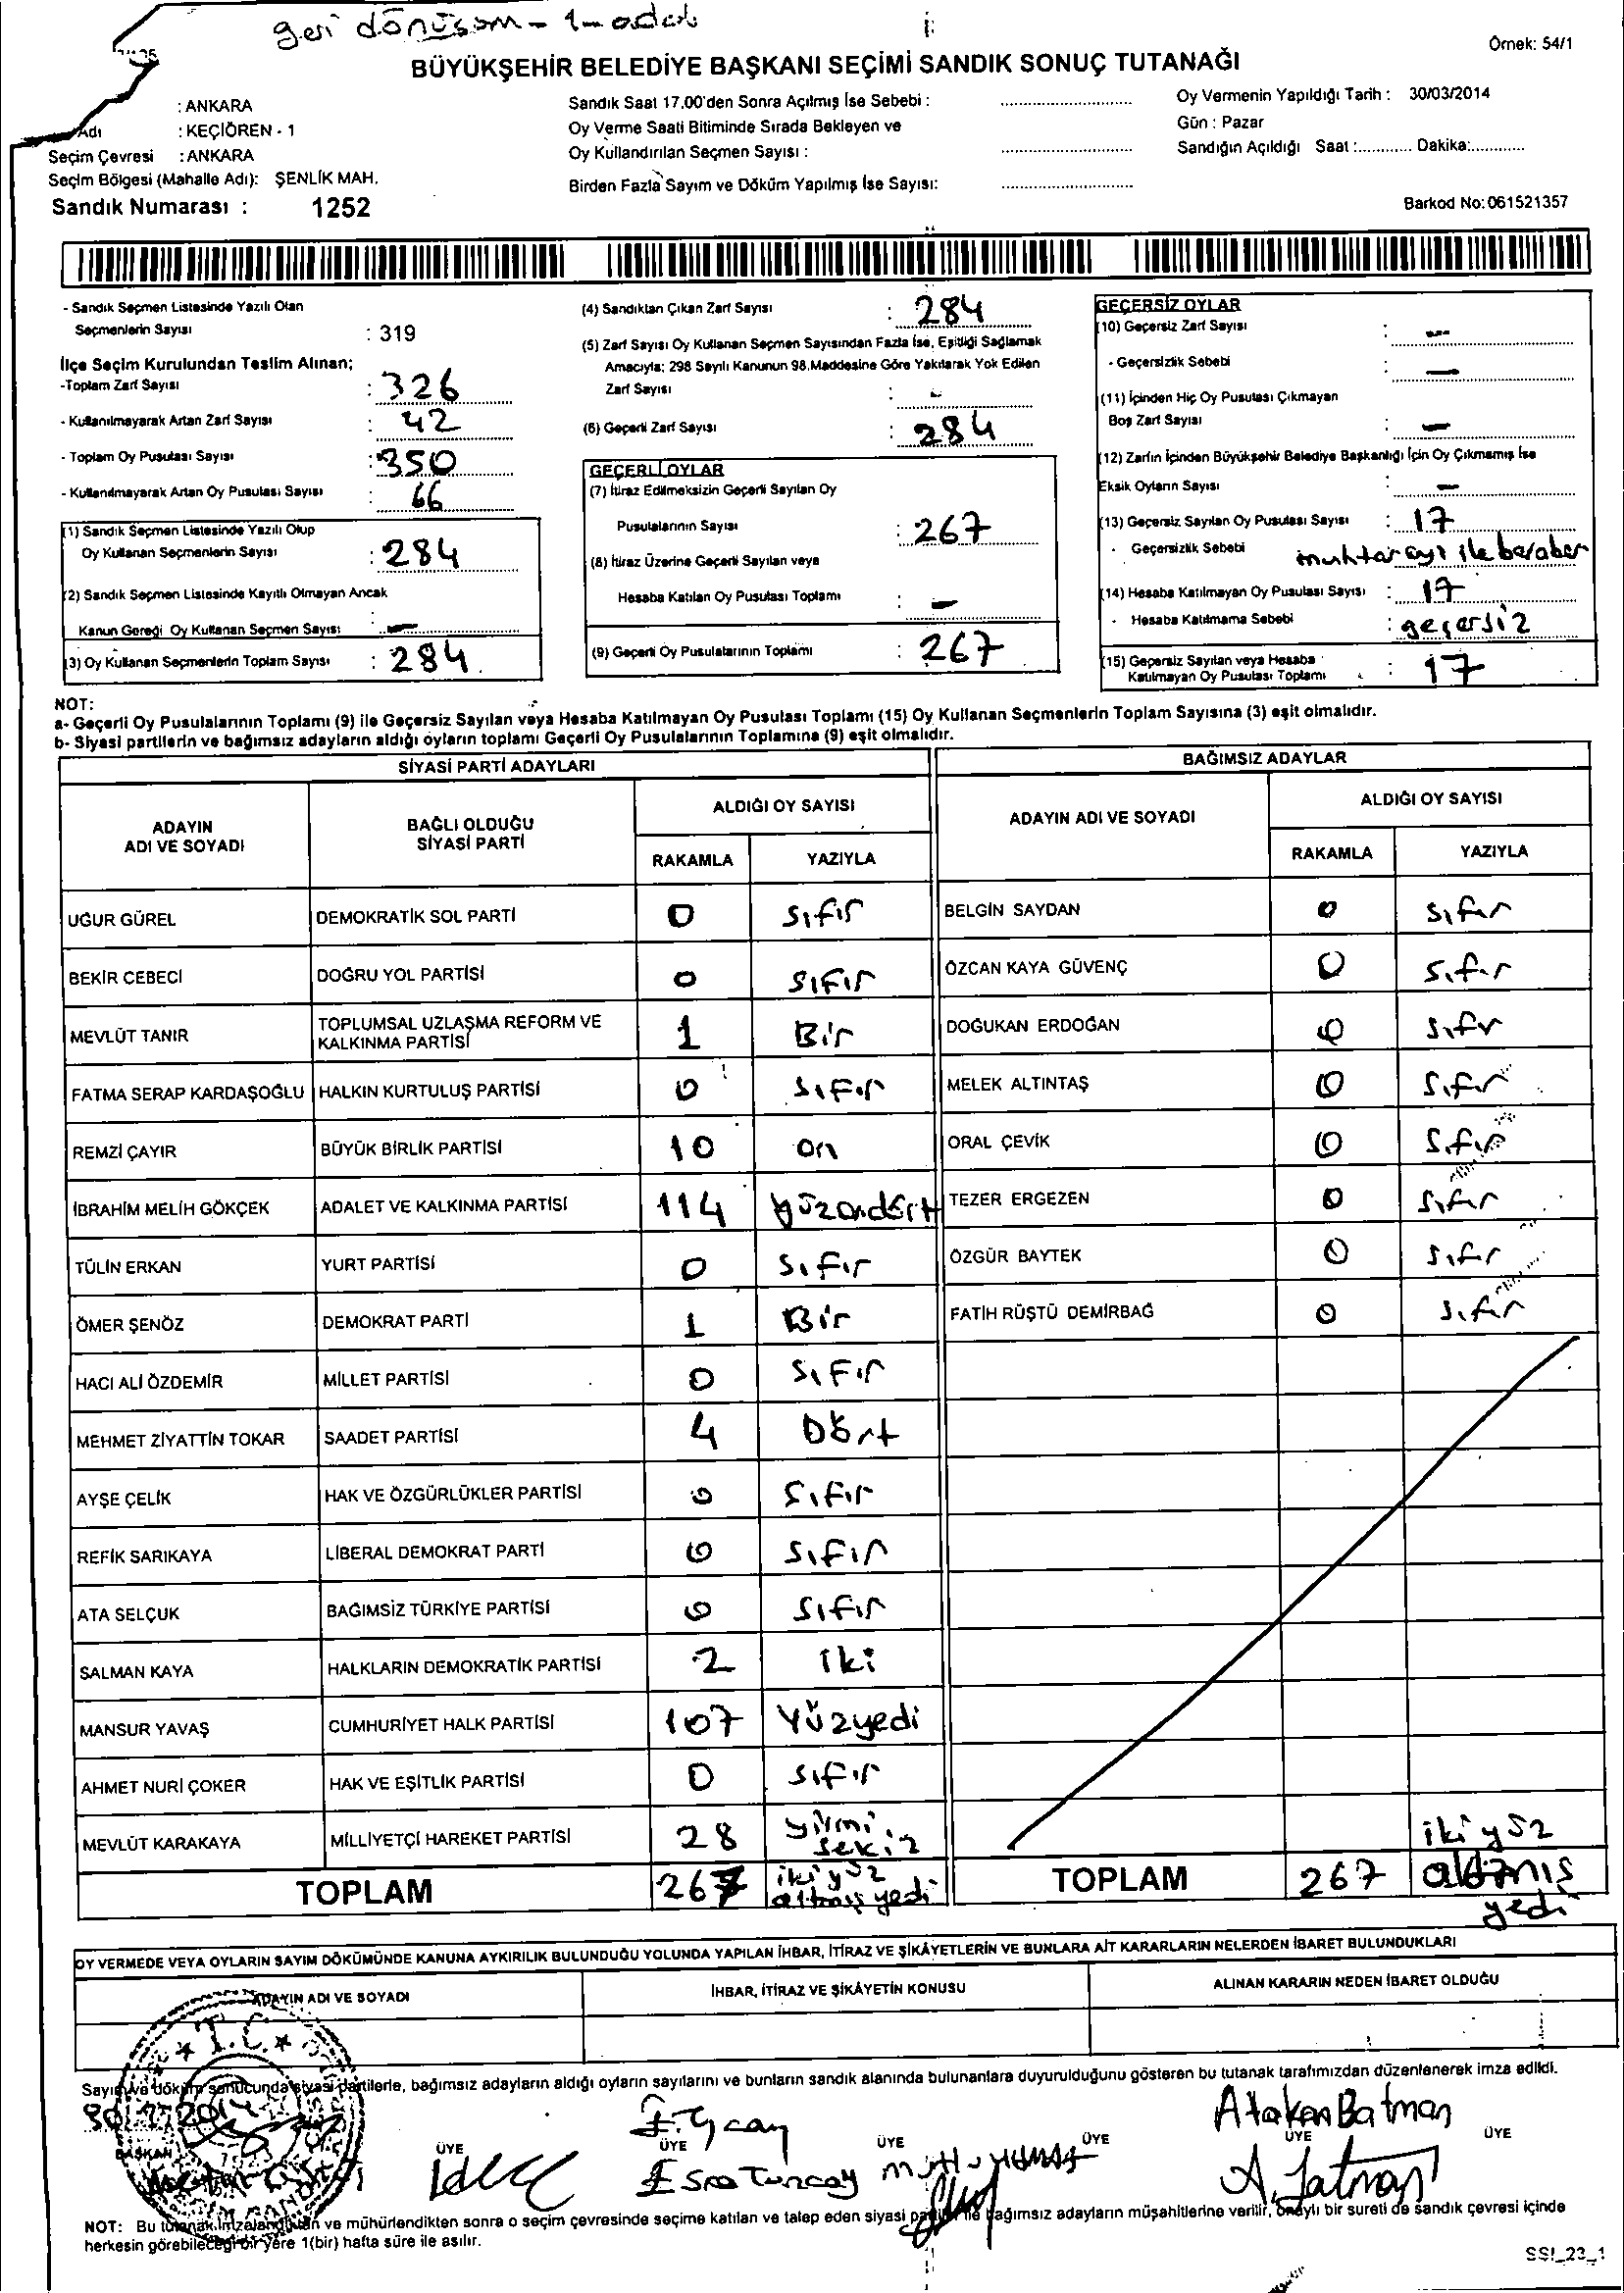 geri dönüşüm - 1 - adet
Örnek: 54/1
BÜYÜKŞEHİR BELEDİYE BAŞKANI SEÇİMİ SANDIK SONUÇ TUTANAĞI
: ANKARA
Adı : KEÇİÖREN - 1
Seçim Çevresi : ANKARA
Seçim Bölgesi (Mahalle Adı): ŞENLİK MAH.
Sandık Numarası : 1252
Sandık Saat 17.00'den Sonra Açılmış İse Sebebi :
Oy Verme Saati Bitiminde Sırada Bekleyen ve
Oy Kullandırılan Seçmen Sayısı :
Birden Fazla Sayım ve Döküm Yapılmış İse Sayısı:
Oy Vermenin Yapıldığı Tarih : 30/03/2014
Gün : Pazar
Sandığın Açıldığı Saat :............ Dakika:............
Barkod No:061521357
- Sandık Seçmen Listesinde Yazılı Olan
Seçmenlerin Sayısı : 319
İlçe Seçim Kurulundan Teslim Alınan;
-Toplam Zarf Sayısı : 326
- Kullanılmayarak Artan Zarf Sayısı : 42
- Toplam Oy Pusulası Sayısı : 350
- Kullanılmayarak Artan Oy Pusulası Sayısı : 66
(1) Sandık Seçmen Listesinde Yazılı Olup
Oy Kullanan Seçmenlerin Sayısı : 284
(2) Sandık Seçmen Listesinde Kayıtlı Olmayan Ancak
Kanun Gereği Oy Kullanan Seçmen Sayısı : -
(3) Oy Kullanan Seçmenlerin Toplam Sayısı : 284
(4) Sandıktan Çıkan Zarf Sayısı : 284
(5) Zarf Sayısı Oy Kullanan Seçmen Sayısından Fazla İse, Eşitliği Sağlamak
Amacıyla; 298 Sayılı Kanunun 98.Maddesine Göre Yakılarak Yok Edilen
Zarf Sayısı : -
(6) Geçerli Zarf Sayısı : 284
GEÇERLİ OYLAR
(7) İtiraz Edilmeksizin Geçerli Sayılan Oy
Pusulalarının Sayısı : 267
(8) İtiraz Üzerine Geçerli Sayılan veya
Hesaba Katılan Oy Pusulası Toplamı : -
(9) Geçerli Oy Pusulalarının Toplamı : 267
GEÇERSİZ OYLAR
(10) Geçersiz Zarf Sayısı : -
- Geçersizlik Sebebi : -
(11) İçinden Hiç Oy Pusulası Çıkmayan
Boş Zarf Sayısı : -
(12) Zarfın İçinden Büyükşehir Belediye Başkanlığı İçin Oy Çıkmamış İse
Eksik Oyların Sayısı : -
(13) Geçersiz Sayılan Oy Pusulası Sayısı : 17
- Geçersizlik Sebebi muhtar oyı ile beraber
(14) Hesaba Katılmayan Oy Pusulası Sayısı : 17
- Hesaba Katılmama Sebebi : geçersiz
(15) Geçersiz Sayılan veya Hesaba
Katılmayan Oy Pusulası Toplamı : 17
NOT:
a- Geçerli Oy Pusulalarının Toplamı (9) ile Geçersiz Sayılan veya Hesaba Katılmayan Oy Pusulası Toplamı (15) Oy Kullanan Seçmenlerin Toplam Sayısına (3) eşit olmalıdır.
b- Siyasi partilerin ve bağımsız adayların aldığı oyların toplamı Geçerli Oy Pusulalarının Toplamına (9) eşit olmalıdır.
SİYASİ PARTİ ADAYLARI
ADAYIN ADI VE SOYADI BAĞLI OLDUĞU SİYASİ PARTİ ALDIĞI OY SAYISI
RAKAMLA YAZIYLA
UĞUR GÜREL DEMOKRATİK SOL PARTİ 0 sıfır
BEKİR CEBECİ DOĞRU YOL PARTİSİ 0 sıfır
MEVLÜT TANIR TOPLUMSAL UZLAŞMA REFORM VE KALKINMA PARTİSİ 1 Bir
FATMA SERAP KARDAŞOĞLU HALKIN KURTULUŞ PARTİSİ 0 sıfır
REMZİ ÇAYIR BÜYÜK BİRLİK PARTİSİ 10 on
İBRAHİM MELİH GÖKÇEK ADALET VE KALKINMA PARTİSİ 114 yüzondört
TÜLİN ERKAN YURT PARTİSİ 0 sıfır
ÖMER ŞENÖZ DEMOKRAT PARTİ 1 Bir
HACI ALİ ÖZDEMİR MİLLET PARTİSİ 0 sıfır
MEHMET ZİYATTİN TOKAR SAADET PARTİSİ 4 Dört
AYŞE ÇELİK HAK VE ÖZGÜRLÜKLER PARTİSİ 0 sıfır
REFİK SARIKAYA LİBERAL DEMOKRAT PARTİ 0 sıfır
ATA SELÇUK BAĞIMSIZ TÜRKİYE PARTİSİ 0 sıfır
SALMAN KAYA HALKLARIN DEMOKRATİK PARTİSİ 2 iki
MANSUR YAVAŞ CUMHURİYET HALK PARTİSİ 107 Yüzyedi
AHMET NURİ ÇOKER HAK VE EŞİTLİK PARTİSİ 0 sıfır
MEVLÜT KARAKAYA MİLLİYETÇİ HAREKET PARTİSİ 28 yirmi sekiz
TOPLAM 267 iki yüz altmış yedi
BAĞIMSIZ ADAYLAR
ADAYIN ADI VE SOYADI ALDIĞI OY SAYISI
RAKAMLA YAZIYLA
BELGİN SAYDAN 0 sıfır
ÖZCAN KAYA GÜVENÇ 0 sıfır
DOĞUKAN ERDOĞAN 0 sıfır
MELEK ALTINTAŞ 0 sıfır
ORAL ÇEVİK 0 sıfır
TEZER ERGEZEN 0 sıfır
ÖZGÜR BAYTEK 0 sıfır
FATİH RÜŞTÜ DEMİRBAĞ 0 sıfır
TOPLAM 267 iki yüz altmış yedi
OY VERMEDE VEYA OYLARIN SAYIM DÖKÜMÜNDE KANUNA AYKIRILIK BULUNDUĞU YOLUNDA YAPILAN İHBAR, İTİRAZ VE ŞİKÂYETLERİN VE BUNLARA AİT KARARLARIN NELERDEN İBARET BULUNDUKLARI
ADAYIN ADI VE SOYADI İHBAR, İTİRAZ VE ŞİKÂYETİN KONUSU ALINAN KARARIN NEDEN İBARET OLDUĞU
T.C.
Sayım ve döküm sonucunda siyasi partilerle, bağımsız adayların aldığı oyların sayılarını ve bunların sandık alanında bulunanlara duyurulduğunu gösteren bu tutanak tarafımızdan düzenlenerek imza edildi.
Atakan Batman
BAŞKAN ÜYE ÜYE ÜYE ÜYE ÜYE ÜYE
Esra Tuncay
A. Batman
NOT: Bu tutanak imzalandıktan ve mühürlendikten sonra o seçim çevresinde seçime katılan ve talep eden siyasi partiler ile bağımsız adayların müşahitlerine verilir, onaylı bir sureti de sandık çevresi içinde
herkesin görebileceği bir yere 1(bir) hafta süre ile asılır.
SSI_23_1